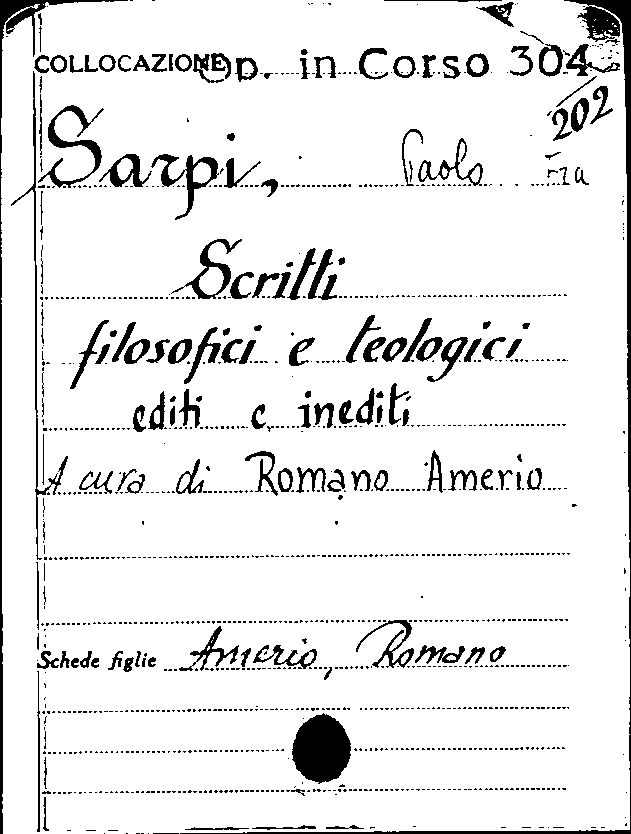 COLLOCAZIONE Op. in Corso 304
202
Sarpi, Paolo Fra
Scritti
filosofici e teologici
editi e inediti
A cura di Romano Amerio
Schede figlie Amerio, Romano